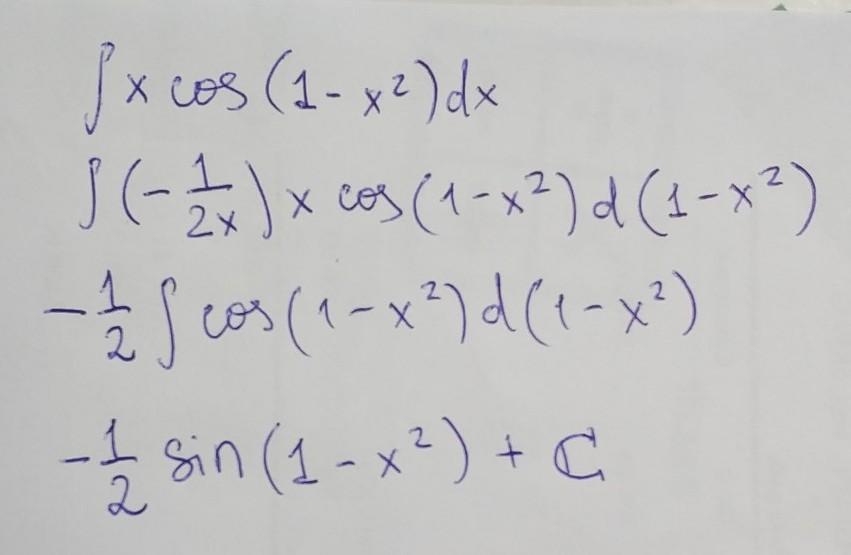 ∫ x cos (1 - x²) dx
∫ (- 1/2x) x cos (1 - x²) d (1 - x²)
- 1/2 ∫ cos (1 - x²) d (1 - x²)
- 1/2 sin (1 - x²) + C